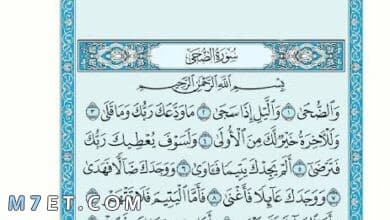 سُورَةُ الضُّحَىٰ
بِسْمِ اللَّهِ الرَّحْمَٰنِ الرَّحِيمِ
وَالضُّحَىٰ ١ وَاللَّيْلِ إِذَا سَجَىٰ ٢ مَا وَدَّعَكَ رَبُّكَ وَمَا قَلَىٰ ٣
وَلَلْآخِرَةُ خَيْرٌ لَّكَ مِنَ الْأُولَىٰ ٤ وَلَسَوْفَ يُعْطِيكَ رَبُّكَ
فَتَرْضَىٰ ٥ أَلَمْ يَجِدْكَ يَتِيمًا فَآوَىٰ ٦ وَوَجَدَكَ ضَالًّا فَهَدَىٰ
٧ وَوَجَدَكَ عَائِلًا فَأَغْنَىٰ ٨ فَأَمَّا الْيَتِيمَ فَلَا تَقْهَرْ
M7ET.COM